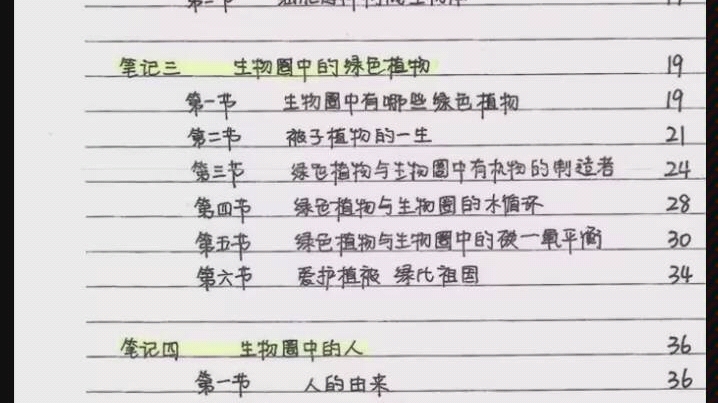 笔记三 生物圈中的绿色植物 19
第一节 生物圈中有哪些绿色植物 19
第二节 被子植物的一生 21
第三节 绿色植物与生物圈中有机物的制造者 24
第四节 绿色植物与生物圈的水循环 28
第五节 绿色植物与生物圈中的碳一氧平衡 30
第六节 爱护植被 绿化祖国 34
笔记四 生物圈中的人 36
第一节 人的由来 36